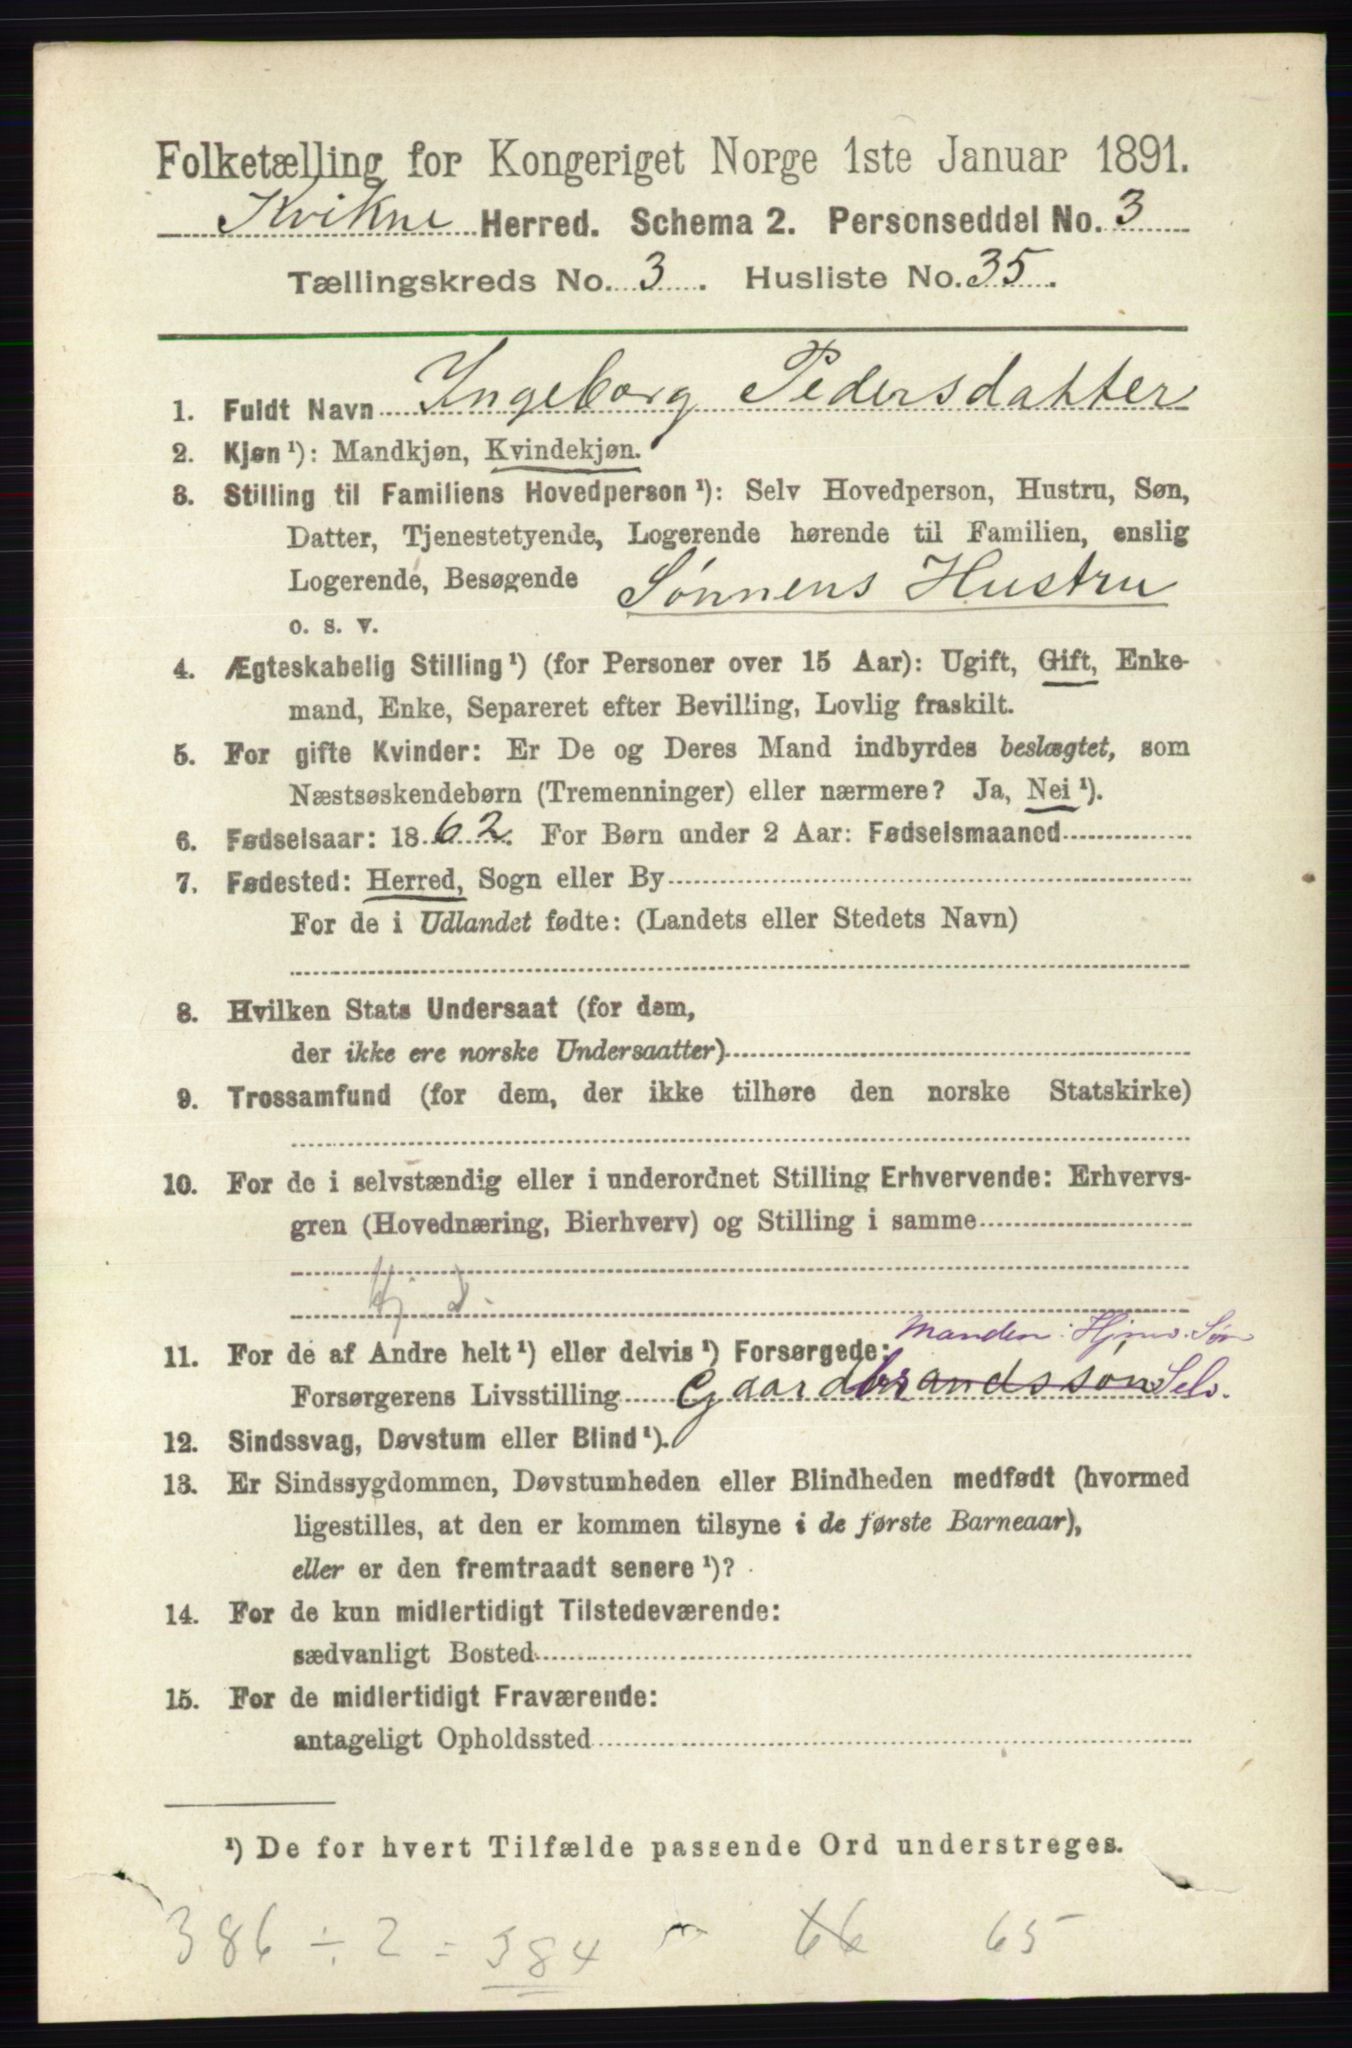 Folketælling for Kongeriget Norge 1ste Januar 1891.
Kvikne Herred. Schema 2. Personseddel No. 3
Tællingskreds No. 3. Husliste No. 35.
1. Fuldt Navn Ingeborg Pedersdatter
2. Kjøn ¹): Mandkjøn, Kvindekjøn.
3. Stilling til Familiens Hovedperson ¹): Selv Hovedperson, Hustru, Søn,
Datter, Tjenestetyende, Logerende hørende til Familien, enslig
Logerende, Besøgende Sønnens Hustru
o. s. v.
4. Ægteskabelig Stilling ¹) (for Personer over 15 Aar): Ugift, Gift, Enke-
mand, Enke, Separeret efter Bevilling, Lovlig fraskilt.
5. For gifte Kvinder: Er De og Deres Mand indbyrdes beslægtet, som
Næstsøskendebørn (Tremenninger) eller nærmere? Ja, Nei ¹).
6. Fødselsaar: 1862. For Børn under 2 Aar: Fødselsmaaned
7. Fødested: Herred, Sogn eller By
For de i Udlandet fødte: (Landets eller Stedets Navn)
8. Hvilken Stats Undersaat (for dem,
der ikke ere norske Undersaatter)
9. Trossamfund (for dem, der ikke tilhøre den norske Statskirke)
10. For de i selvstændig eller i underordnet Stilling Erhvervende: Erhvervs-
gren (Hovednæring, Bierhverv) og Stilling i samme
Manden: Søn
11. For de af Andre helt ¹) eller delvis ¹) Forsørgede:
Forsørgerens Livsstilling Gaardbrandssøn Selv.
12. Sindssvag, Døvstum eller Blind ¹).
13. Er Sindssygdommen, Døvstumheden eller Blindheden medfødt (hvormed
ligestilles, at den er kommen tilsyne i de første Barneaar),
eller er den fremtraadt senere ¹)?
14. For de kun midlertidigt Tilstedeværende:
sædvanligt Bosted
15. For de midlertidigt Fraværende:
antageligt Opholdssted
¹) De for hvert Tilfælde passende Ord understreges.
386 ÷ 2 = 384 66 65